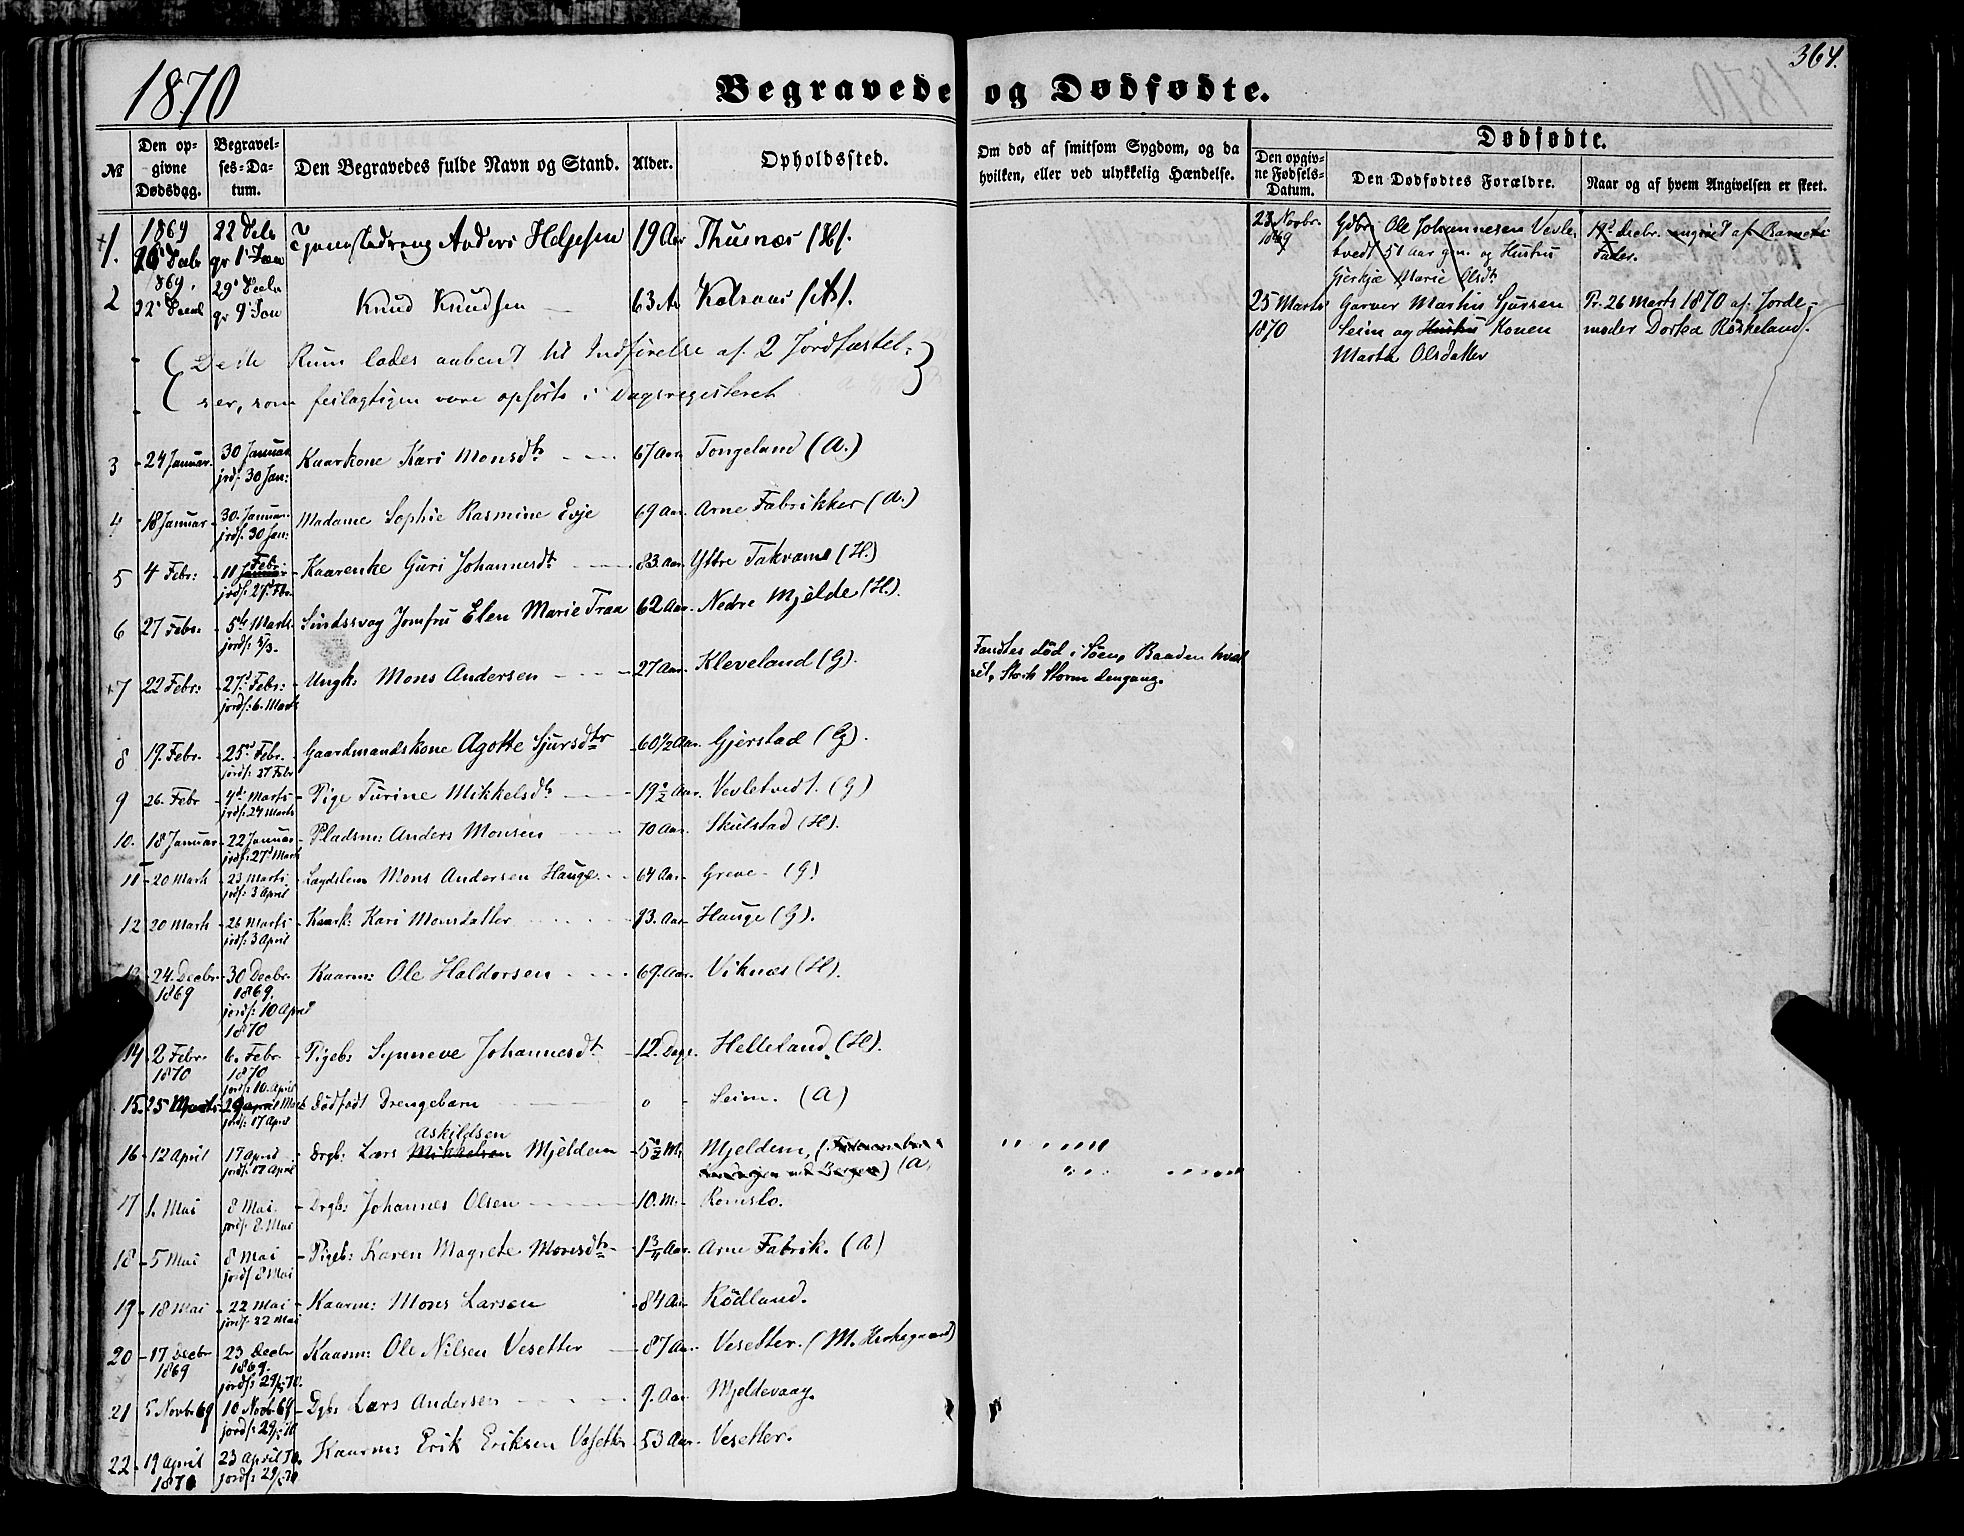 364.
1870
Begravede og Dødfødte.
№
Den opgivne Dødsdag.
Begravelses-Datum.
Den Begravedes fulde Navn og Stand.
Alder.
Opholdssted.
Om død af smitsom Sygdom, og da hvilken, eller ved ulykkelig Hændelse.
Dødfødte.
Den opgivne Fødsels-Datum.
Den Dødfødtes Forældre.
Naar og af hvem Angivelsen er skeet.
1. 1869 Anders Helgesen 19 Aar
2 1869 Knud Knudsen 63 Ar
Rum lades aabent til Indførelse af 2 Jordfæstel-
ser, som feilagtigen vare opførte i Dagsregisteret
3 24 Januar. 30 Januar jrdf. 30 Jan: Kaarkone Kari Monsdtr 67 Aar. Tongeland (A.)
4 18 Januar 30. Januar jrdf. 30 Jan: Madame Sophie Rasmine Evje 69 Aar. Arne Fabrikker (A.)
5 4 Febr: 11 Febr. Kaarenke Guri Johannesdt 83. Aar. Yttre Takvame (H.)
6 27 Febr. 5te Marts jordf. 5/3. Sindssvag Jomfru Elen Marie Traa 62 Aar. Nedre Mjelde (H.)
7 22 Febr: 27d Febr: jordf: 6. Marts Ungk: Mons Andersen 27 Aar. Kleveland (G).
Fandtes død i Søen, Baaden hvæl
vet, Stærk Storm dengang.
8 19. Febr. 25d Febr. jordf. 27 Febr Gaardmandskone Agotte Sjursdtr 60 1/2 Aar. Gjerstad (G).
9 26. Febr 4d Marts jrdf. 27 Marts Pige Turine Mikkelsdtr 19 1/2 Aar. Vevletvedt. (G)
10. 18 Januar 22 Januar jrdf. 27d Mart Pladsm: Anders Monsen 70 Aar. Skulstad (H).
11 20 Marts 23 Marts jrdf. 3 April Lægdslem Mons Andersen Hauge 64 Aar Greve (G)
12 20 Marts 26 Marts jrdf. 3 April Kaark: Kari Monsdatter 93. Aar Hauge (G).
13 24. Decbr. 1869 30 Decbr. 1869. jordf: 10 April 1870 Kaarm: Ole Haldorsen 69. Aar. Viknæs (H).
14 2 Febr. 1870 6. Febr 1870 jordf: 10. April Pigeb: Synneve Johannesdt 12. Dage. Helleland (H).
15. 25 Marts 29 April Marts jrdf: 17 April Dødfødt Drengebarn 0 Seim. (A)
16 12 April 17 April jordf: 17 April Drgb: Lars Mikkelsen Askildsen Mjeldem 5 1/2 M. Mjeldem, (A)
17 1. Mai 8 Mai. jordf. 8. Mai Drgb: Johannes Olsen 10. M. Romslo.
18 5 Mai 8 Mai jordf 8 Mai Pigeb: Karen Magrete Monsdtr 1 3/4 Aar. Arne Fabrik. (A)
19 18 Mai 22 Mai jordf. 22 Mai Kaarm: Mons Larsen 84 Aar Rødland.
20 17 Decbr 1869 23 Decbr 1869. jordf: 29/5 70. Kaarm: Ole Nilsen Vesetter 87 Aar. Vesetter. (M. Herkegaard)
21 5 Novbr 69 10 Novbr 69 jordf: 29/5 70 Dgb: Lars Andersen 9. Aar Mjeldevaag.
22 19 April 1870 23 April 70. jordf: 29/5 70 Kaarm: Erik Eriksen Vesetter 53 Aar. Vesetter.
23 Novbr. 1869
Gdbr. Ole Johannesen Vevle
tvedt 51 Aar gm. og Hustru
Gjerkje Marie Olsdt
19d Decbr. angivet af Barnets
Fader.
25 Marts 1870
Garver Martin Sjursen
Seim og Hustru Konen
Marta Olsdatter
Pr. 26 Marts 1870 af Jorde-
moder Dortea Røskeland.